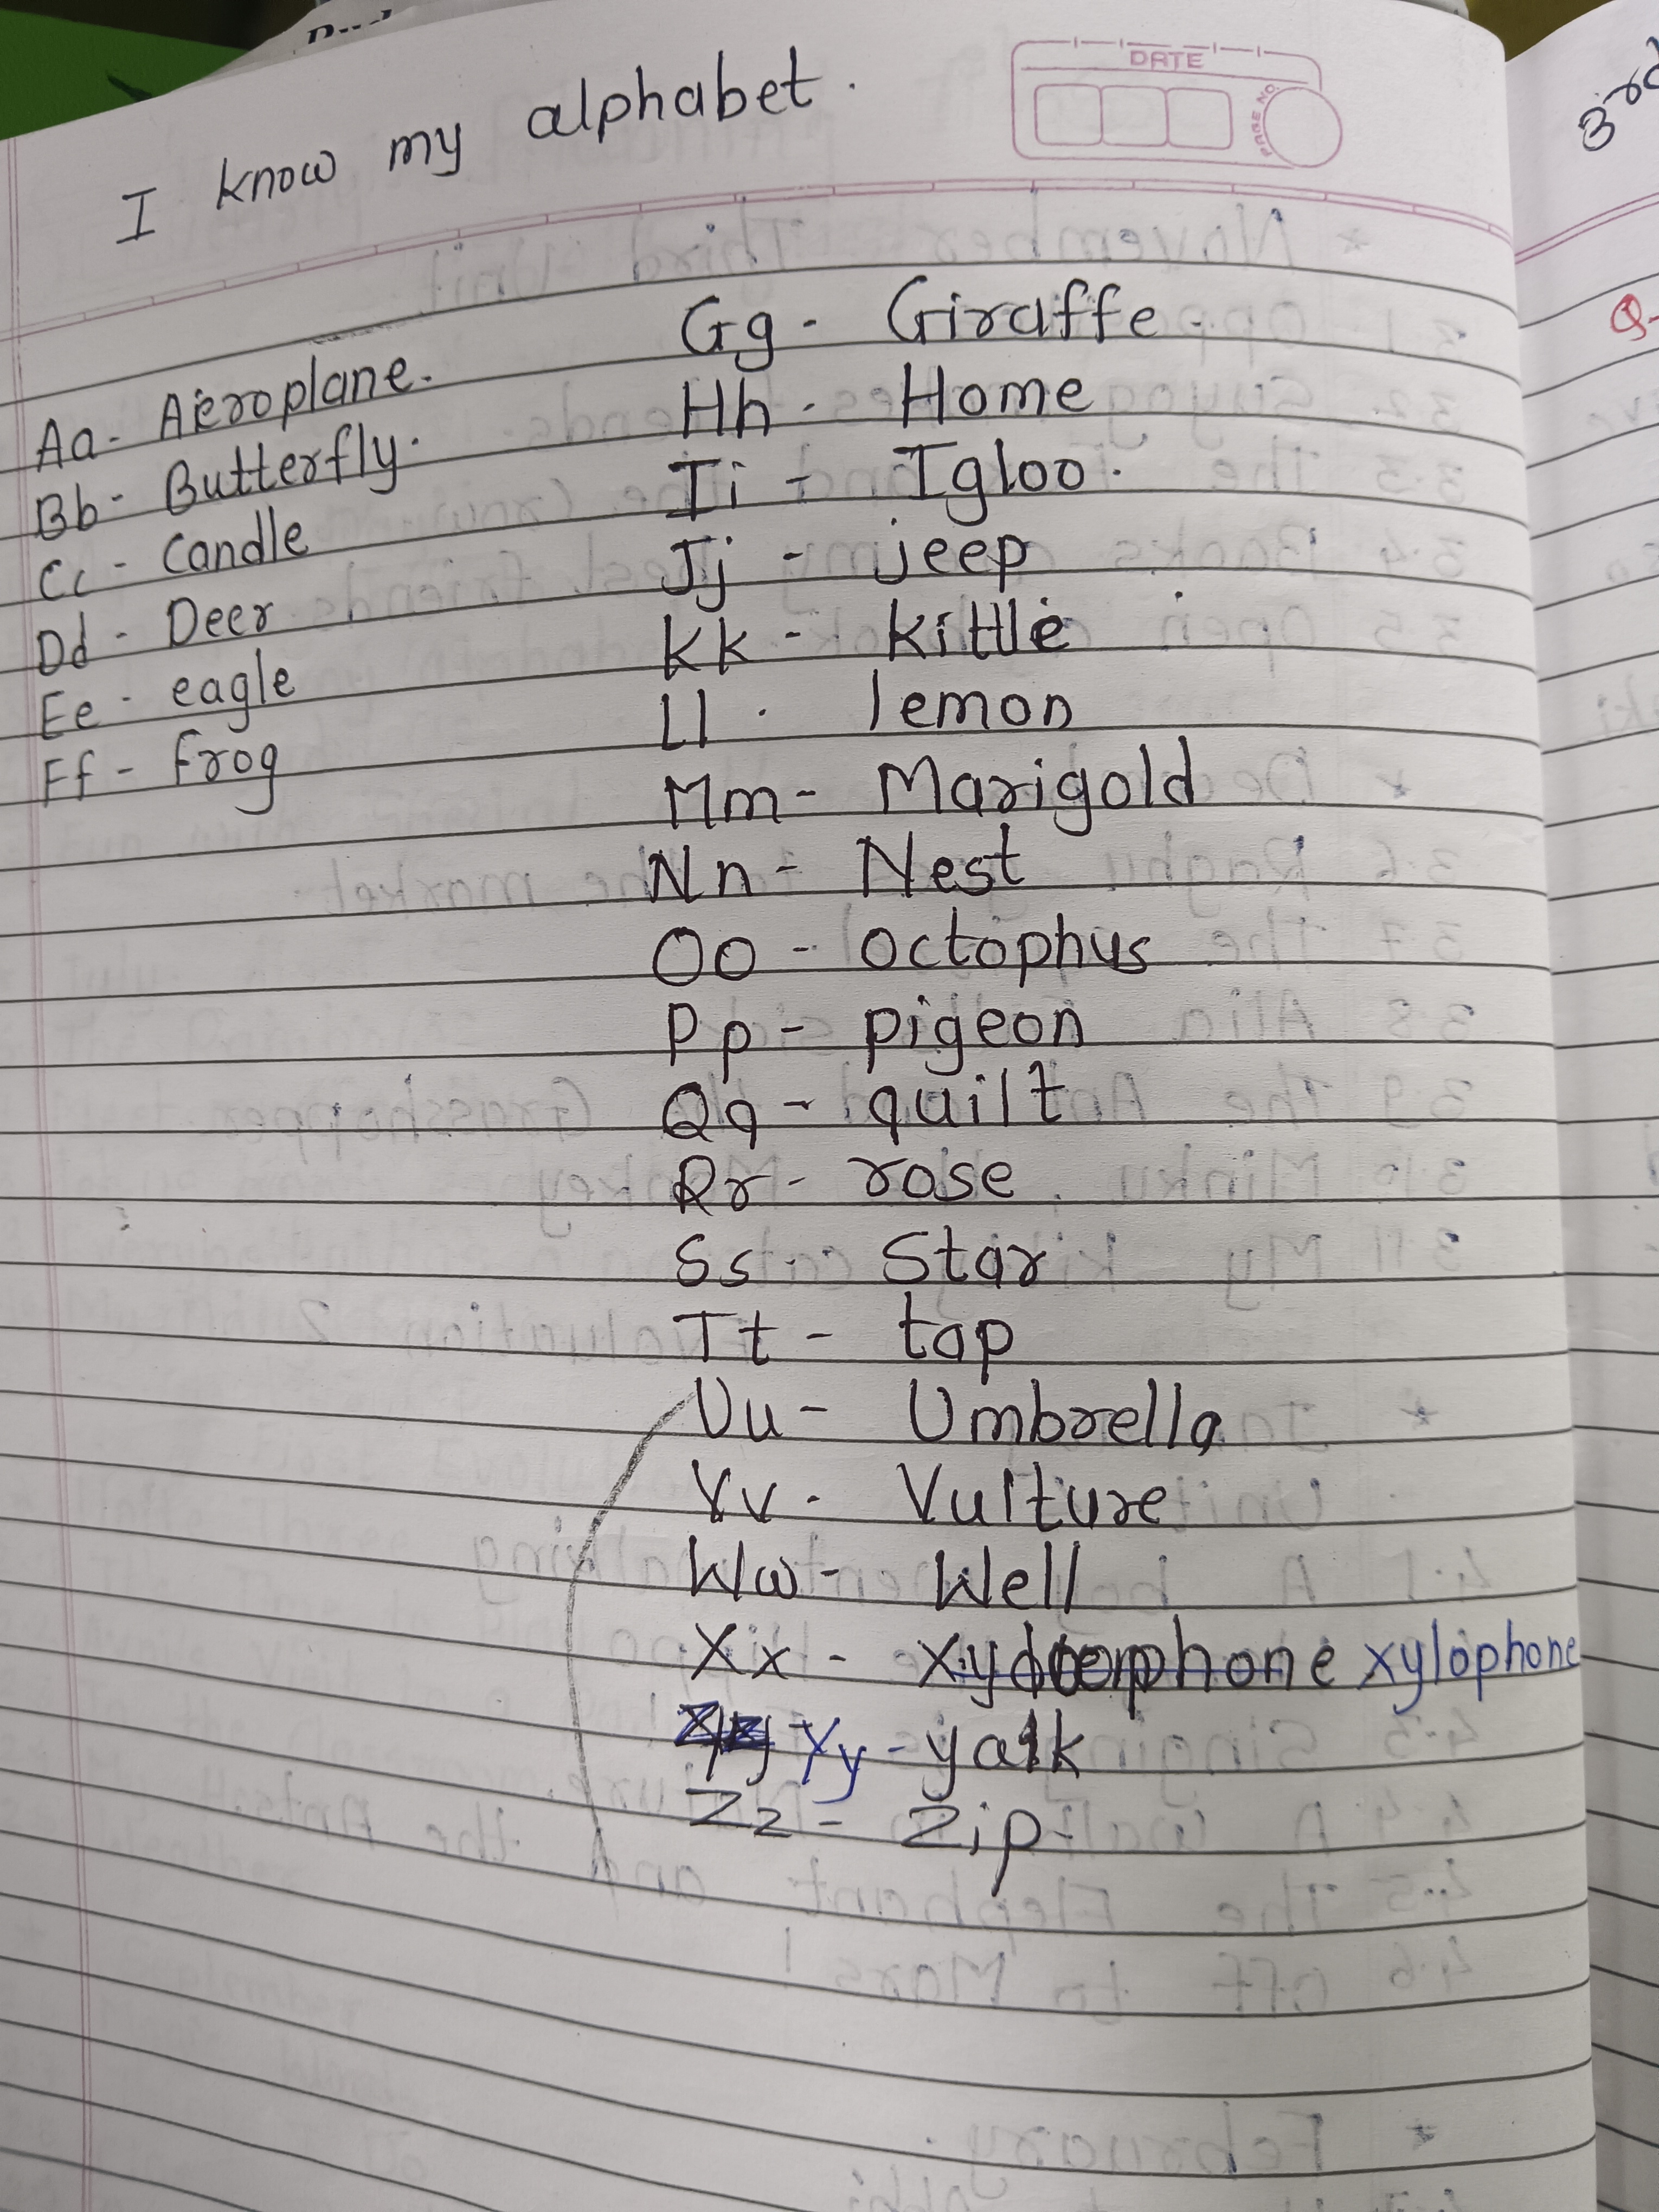 I know my alphabet.
DATE
PAGE NO.
Aa- Aeroplane.
Bb- Butterfly.
Cc- Candle
Dd- Deer
Ee- eagle
Ff- frog
Gg- Giraffe.
Hh- Home
Ii- Igloo.
Jj- jeep
Kk- kittle
Ll. lemon
Mm- Marigold
Nn- Nest
Oo- Octophus
Pp- pigeon
Qq- quilt
Rr- rose
Ss- Star
Tt- top
Uu- Umbrella
Vv- Vulture
Ww- Well
Xx- xylophone
Yy- yalk
Zz- Zip-
3rd
Q-